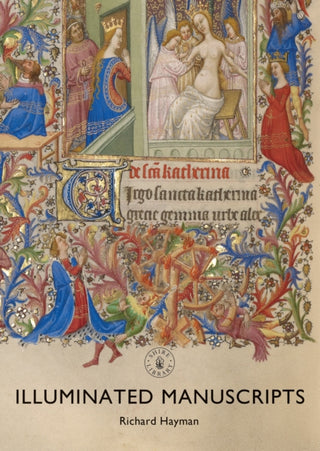 De scã katherina
Virgo sancta katherina
grecie gemma urbe alex
SHIRE LIBRARY
ILLUMINATED MANUSCRIPTS
Richard Hayman